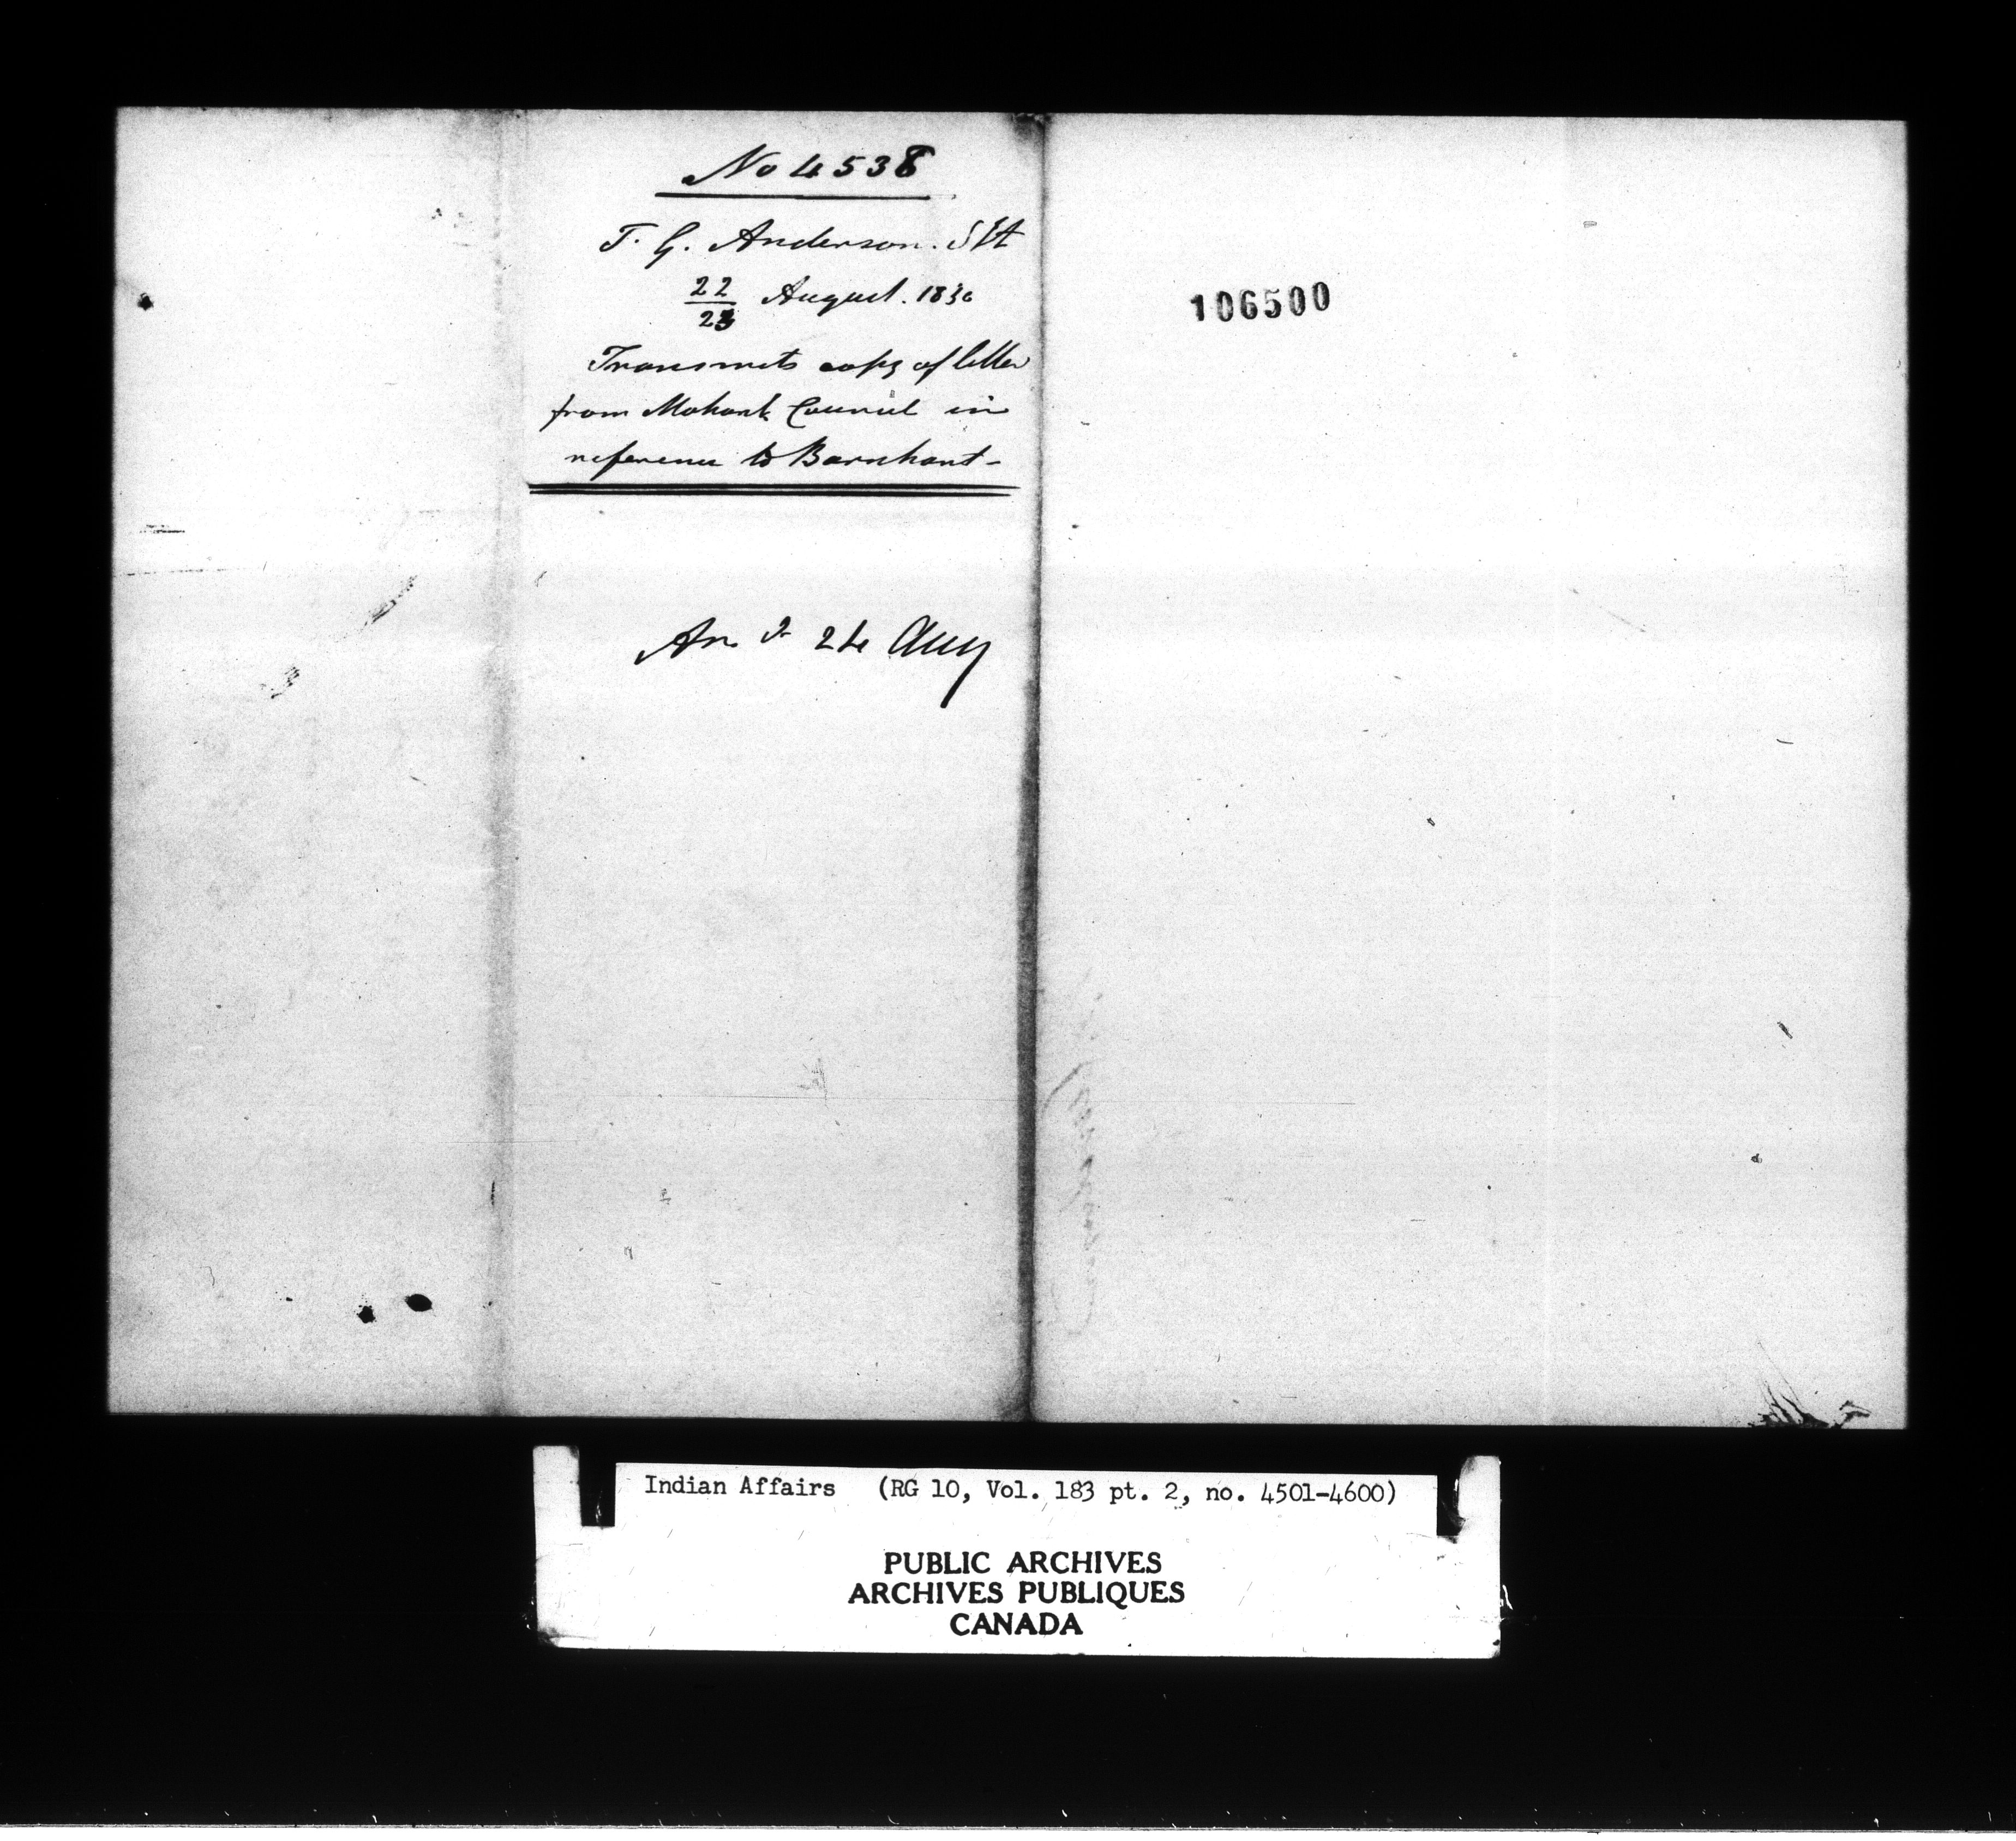 No 4538
T. G. Anderson. SIA
22/23 August. 18
Transmits copy of letter
from Mohawk Council in
reference to Barnhart -
Ansd 24 Aug
106500
Indian Affairs (RG 10, Vol. 183 pt. 2, no. 4501-4600)
PUBLIC ARCHIVES
ARCHIVES PUBLIQUES
CANADA